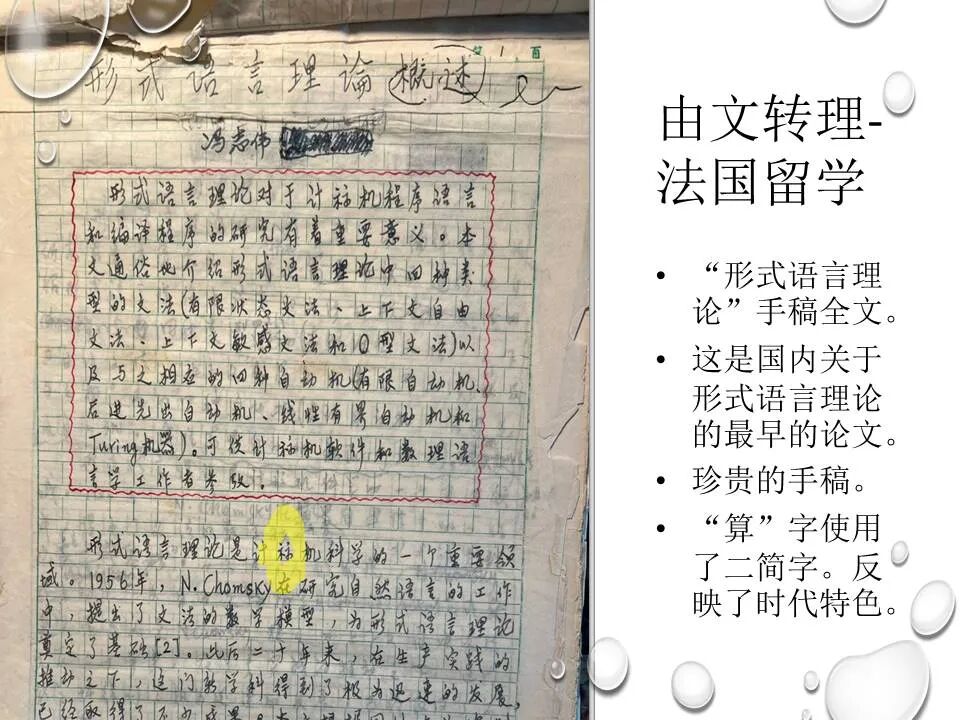 第1页
形式语言理論(概述)
冯志伟
形式语言理论对于计祘机程序语言
和编译程序的研究有着重要意义。本
文通俗地介绍形式语言理论中四种类
型的文法(有限状态文法、上下文自由
文法、上下文敏感文法和0型文法)以
及与之相应的四种自动机(有限自动机、
后进先出自动机、线性有界自动机和
Turing机器)。可供计祘机软件和数理语
言学工作者参攷。
形式语言理论是计祘机科学的一个重要领
域。1956年，N.Chomsky在研究自然语言的工作
中，提出了文法的数学模型，为形式语言理论
奠定了基础[2]。此后二十年来，在生产实践的
推动之下，这门新学科得到了极为迅速的发展，
已经取得了不少成果。
由文转理-
法国留学
• “形式语言理
论”手稿全文。
• 这是国内关于
形式语言理论
的最早的论文。
• 珍贵的手稿。
• “算”字使用
了二简字。反
映了时代特色。